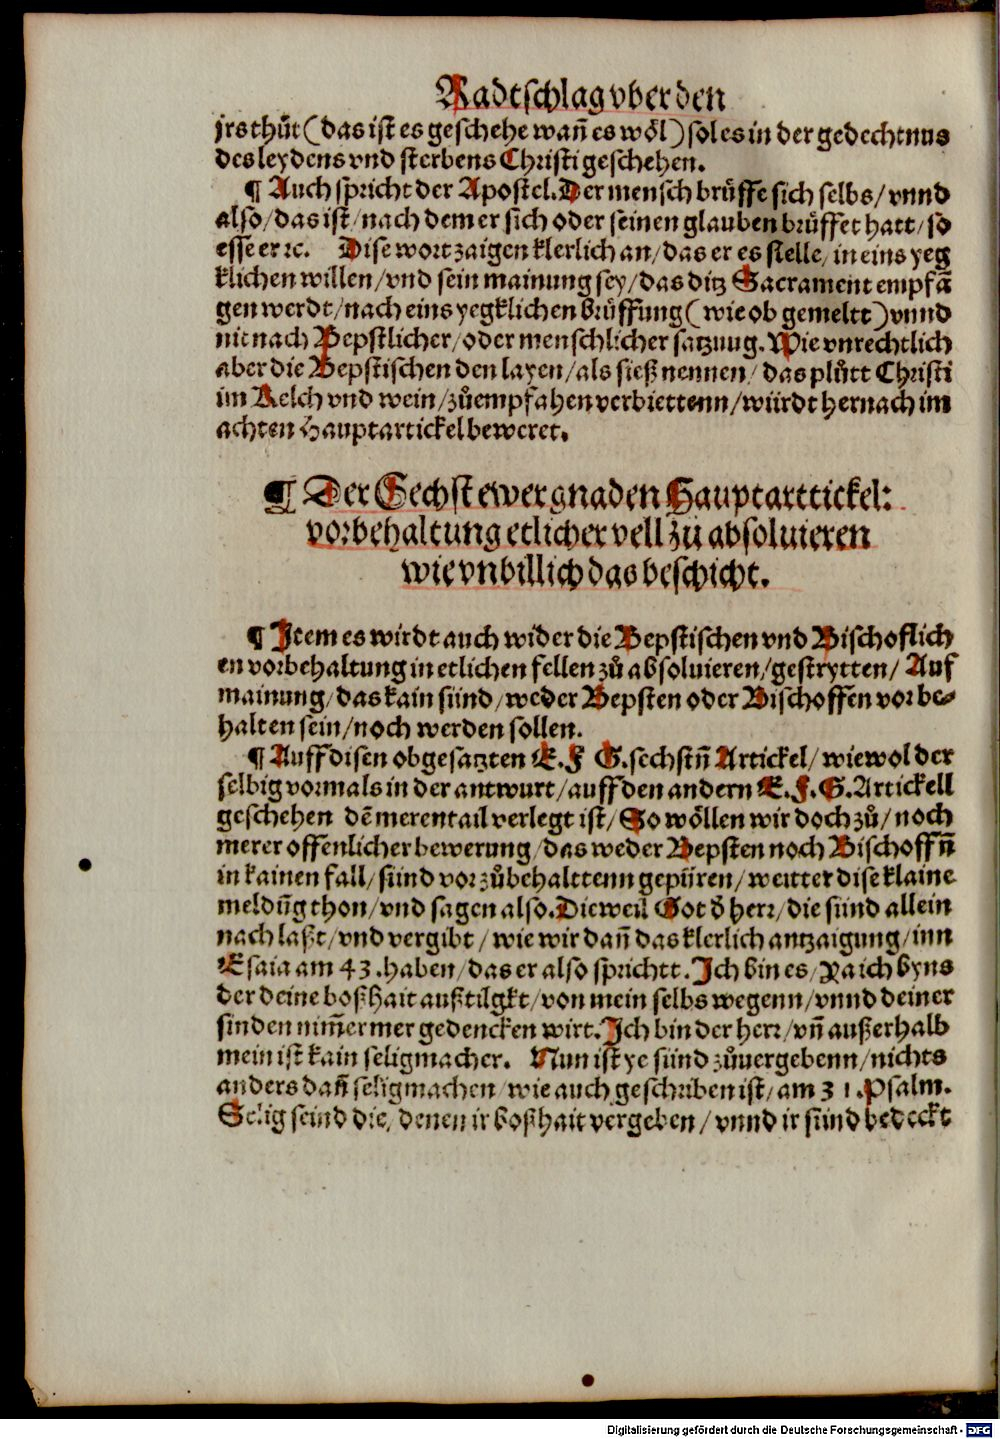 Radtschlag vber den
jrs thůt (das ist es geschehe wañ es wöl) sol es in der gedechtnus
des leydens vnd sterbens Christi geschehen.
¶ Auch spricht der Apostel. Der mensch brüffe sich selbs/ vnnd
also/ das ist/ nach dem er sich oder seinen glauben brüffet hatt/ so
esse er ꝛc. Dise wort zaigen klerlich an/ das er es stelle/ in eins yeg
klichen willen/ vnd sein mainung sey/ das ditz Sacrament empfā
gen werdt/ nach eins yegklichen brüffung (wie ob gemeltt) vnnd
nit nach Bepstlicher/ oder menschlicher satzuug. Wie vnrechtlich
aber die Bepstischen den layen/ als sieß nennen/ das plůtt Christi
im Kelch vnd wein/ zůempfahen verbiettenn/ würdt hernach im
achten Hauptartickel beweret.
¶ Der Sechst ewer gnaden Hauptarttickel:
vorbehaltung etlicher vell zů absoluieren
wie vnbillich das beschicht.
¶ Item es wirdt auch wider die Bepstischen vnd Bischoflich
en vorbehaltung in etlichen fellen zů absoluieren/ gestrytten/ Auf
mainung/ das kain sünd/ weder Bepsten oder Bischoffen vor be⸗
halten sein/ noch werden sollen.
¶ Auff disen obgesatzten E. F G. sechstñ Artickel/ wiewol der
selbig vormals in der antwurt/ auff den andern E. F. G. Artickell
geschehen dē merentail verlegt ist/ So wöllen wir doch zů/ noch
merer offenlicher bewerung/ das weder Bepsten noch Bischoffñ
in kainen fall/ sünd vor zůbehalttenn gepüren/ weitter dise klaine
meldūg thon/ vnd sagen also. Dieweil Got ð herr/ die sünd allein
nach laßt/ vnd vergibt/ wie wir dañ das klerlich antzaigung/ inn
Esaia am 43. haben/ das er also sprichtt. Ich bin es/ Ya ich byns
der deine boßhait außtilgkt/ von mein selbs wegenn/ vnnd deiner
sinden nim̃er mer gedencken wirt. Ich bin der herr/ vñ außerhalb
mein ist kain seligmacher. Nun ist ye sünd zůuergebenn/ nichts
anders dañ seligmachen/ wie auch geschriben ist/ am 31. Psalm.
Selig seind die/ denen ir boßhait vergeben/ vnnd ir sünd bedeckt
Digitalisierung gefördert durch die Deutsche Forschungsgemeinschaft - DFG